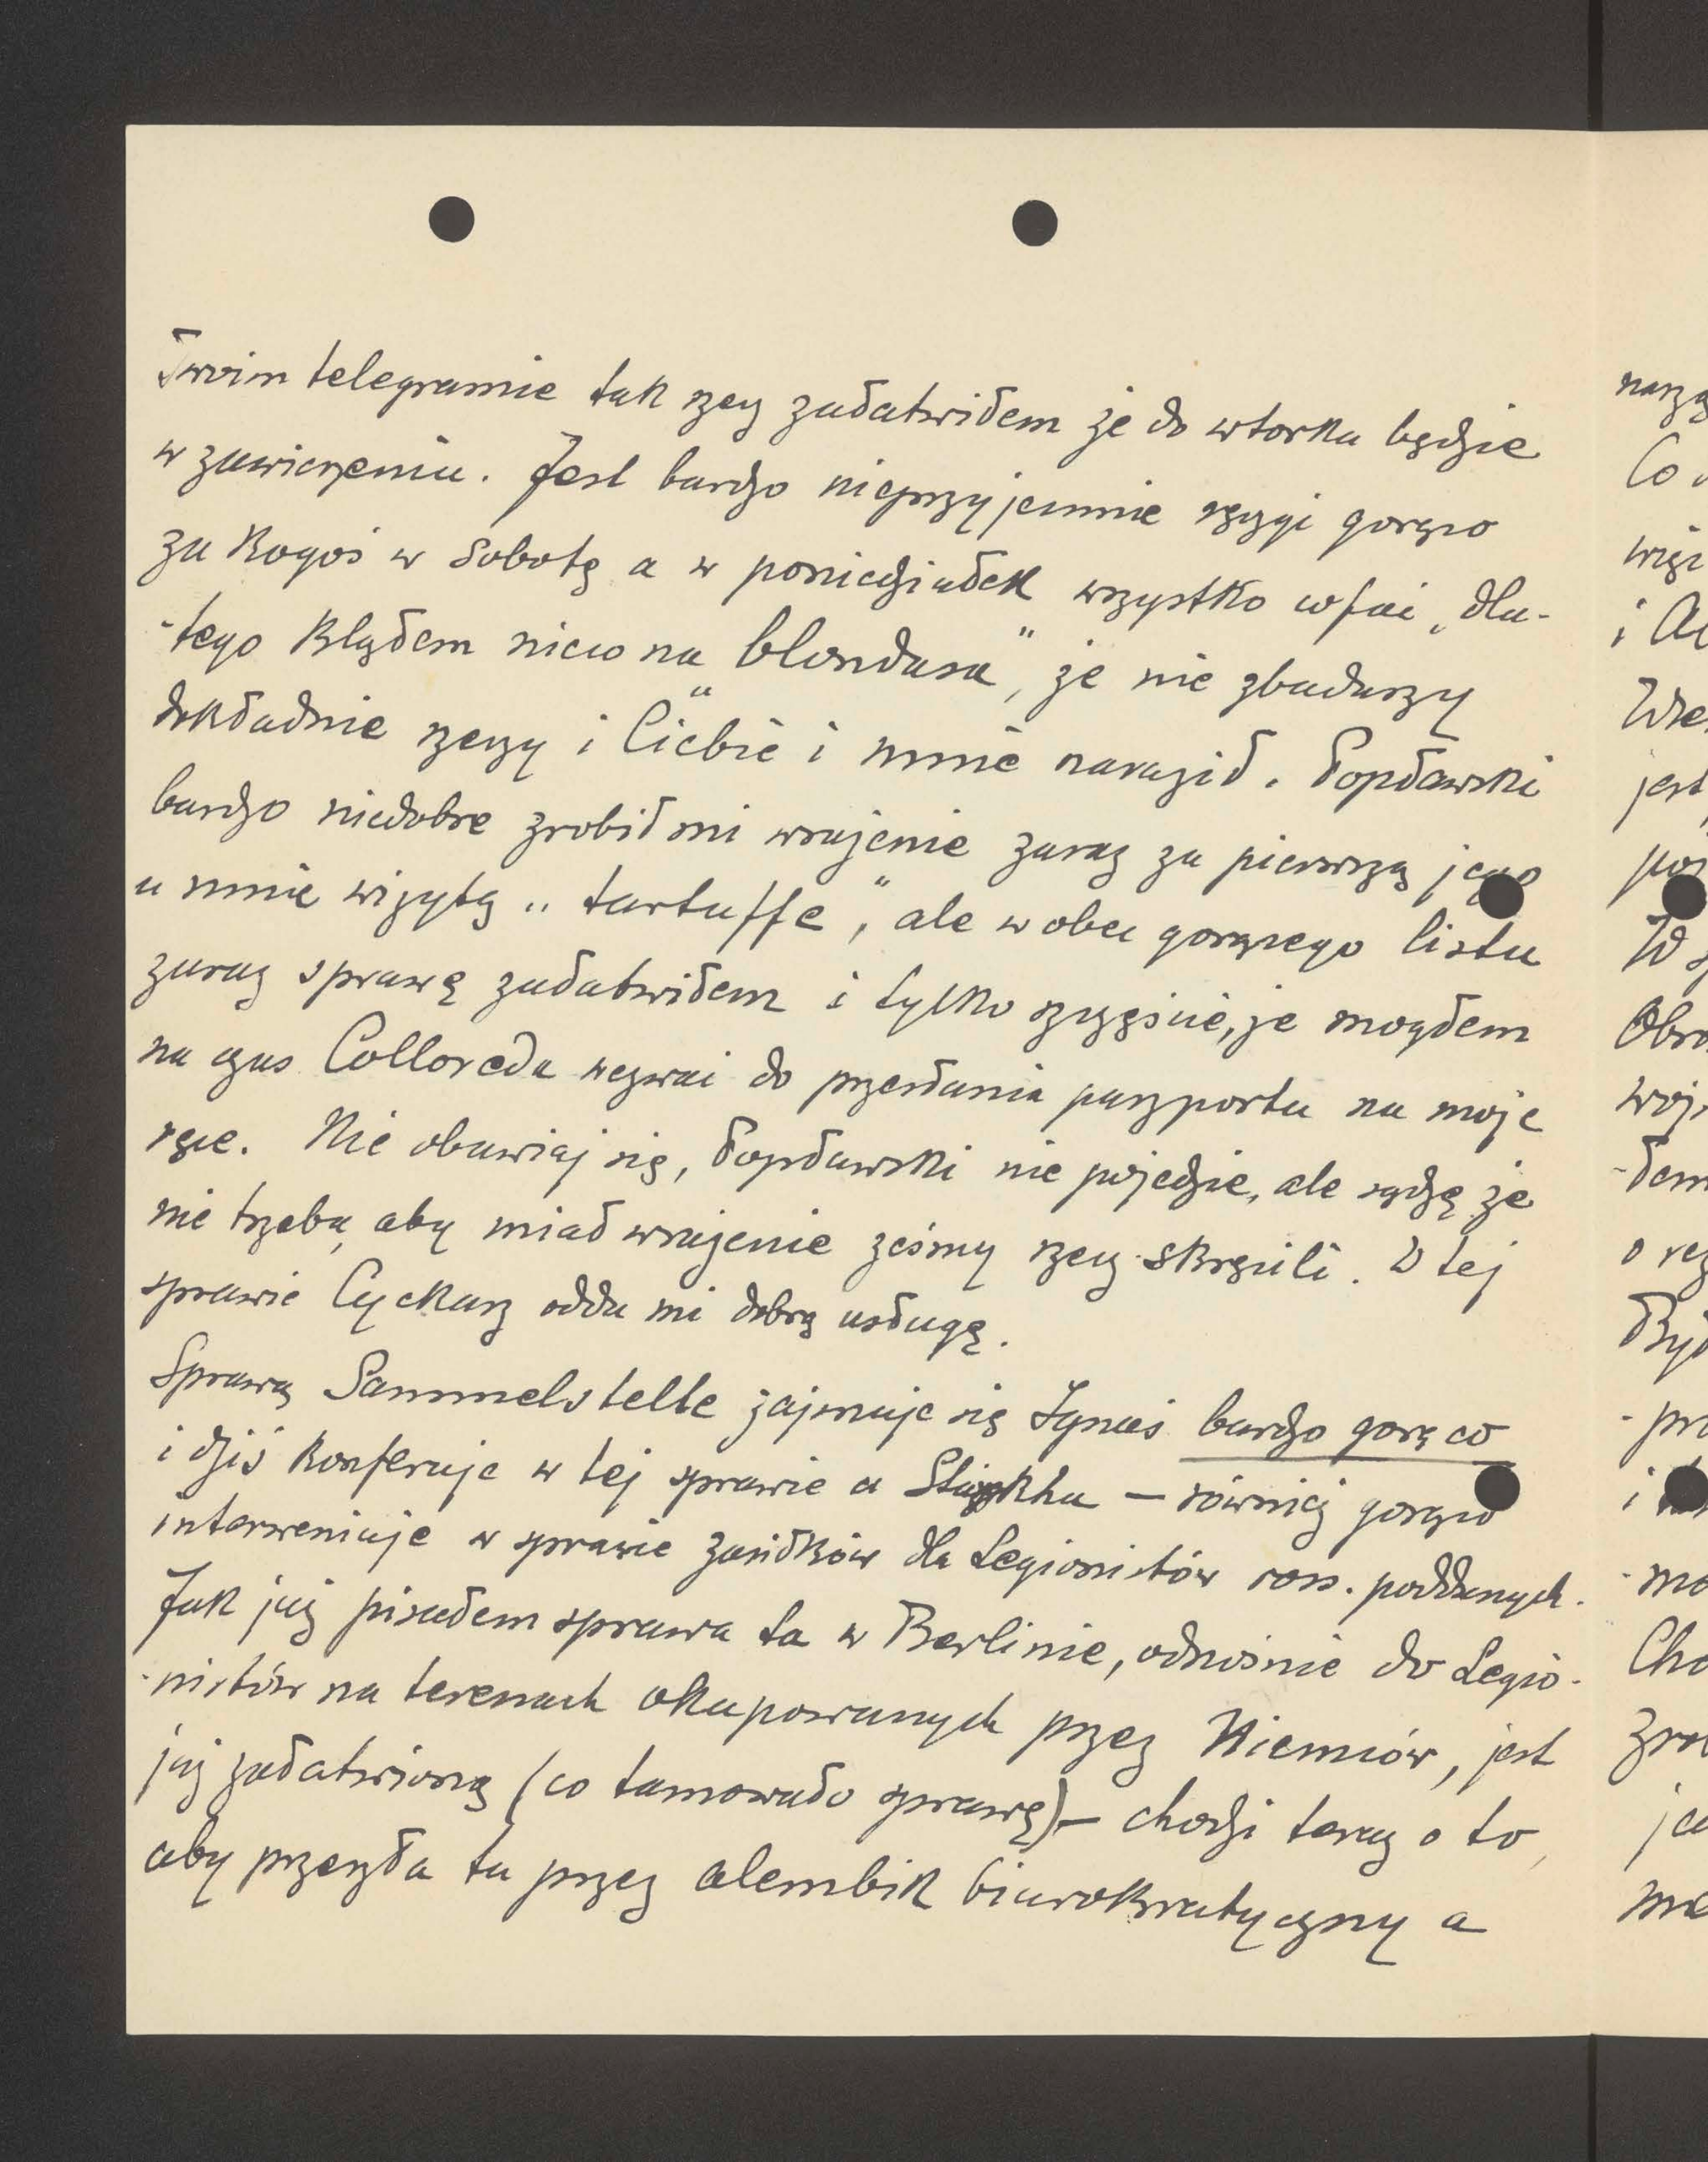 Twoim telegramie tak rzecz załatwiłem że do wtorku będzie
w zawieszeniu. Jest bardzo nieprzyjemnie ręczyć gorąco
za kogoś w sobotę a w poniedziałek wszystko cofać, dla-
-tego kląłem nieco na "blondasa", że nie zbadawszy
dokładnie rzeczy i Ciebie i mnie naraził. Popławski
bardzo niedobre zrobił mi wrażenie zaraz za pierwszą jego
u mnie wizytą „tartuffe", ale wobec gorącego listu
zaraz sprawę załatwiłem i tylko szczęście, że mogłem
na czas Colloreda wezwać do przesłania paszportu na moje
ręce. Nie obawiaj się, Popławski nie pojedzie, ale sądzę że
nie trzeba, aby miał wrażenie żeśmy rzecz skręcili. W tej
sprawie Cyckarz odda mi dobrą usługę.
Sprawą Sammelstelle zajmuje się Ignaś bardzo gorąco
i dziś konferuje w tej sprawie u — również gorąco
interweniuje w sprawie zasiłków dla Legionistów ross. poddanych.
Jak już pisałem sprawa ta w Berlinie, odnośnie do Legio-
-nistów na terenach okupowanych przez Niemców, jest
już załatwioną (co tamowało sprawę) – chodzi teraz o to,
aby przeszła tu przez alembik biurokratyczny a
narzą
Co
więc
i
jest
W
Obro
woj
-łem
o
Był
-pr
i
mo
Cho
zro